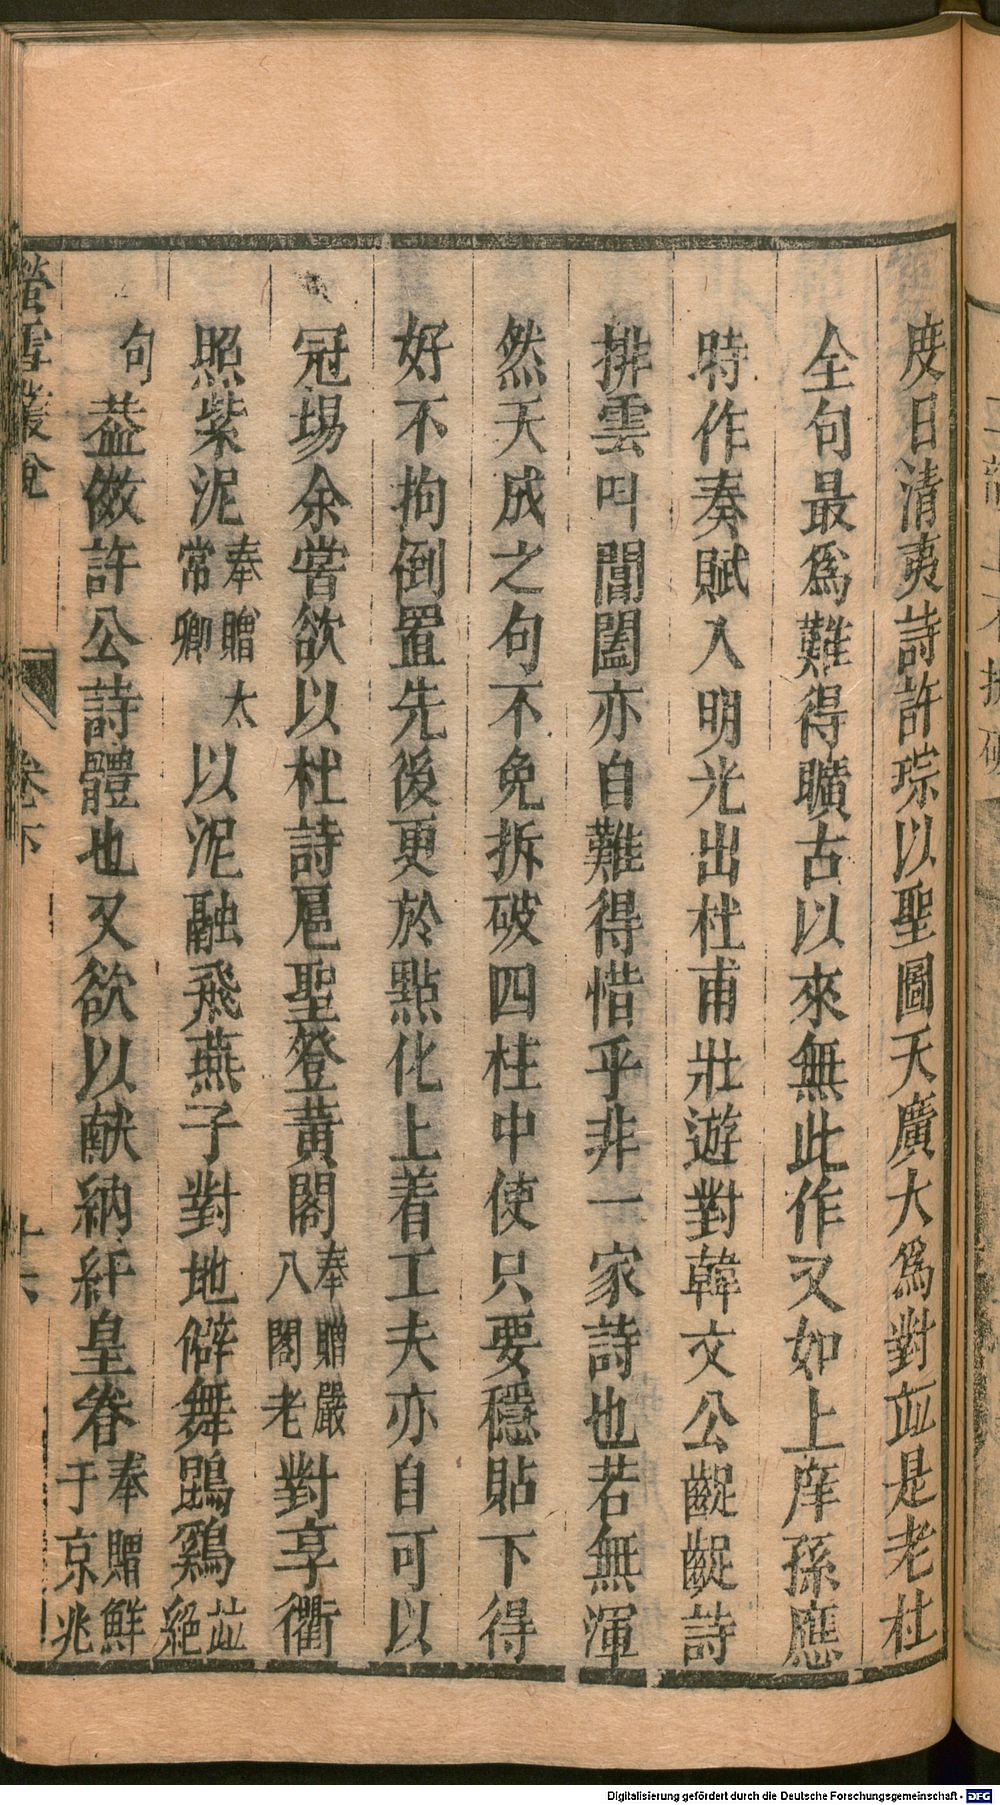 度日清夷詩許琮以聖圖天廣大爲對竝是老杜
全句最爲難得曠古以來無此作又如上庠孫應
時作奏賦入明光出杜甫壯遊對韓文公齪齪詩
排雲叫閶闔亦自難得惜乎非一家詩也若無渾
然天成之句不免拆破四柱中使只要穩貼下得
好不拘倒置先後更於點化上着工夫亦自可以
冠場余嘗欲以杜詩扈聖登黃閣奉贈嚴八閣老對享衢
照紫泥奉贈太常卿以泥融飛燕子對地僻舞鵾鷄竝絕
句葢倣許公詩體也又欲以献納紆皇眷奉贈鮮于京兆
螢雪叢說 卷下 十六
Digitalisierung gefördert durch die Deutsche Forschungsgemeinschaft - DFG